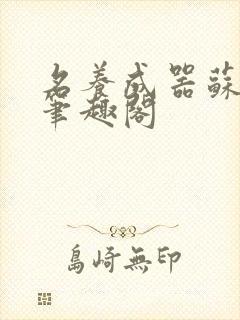 名養成器蘇
筆趣閣
島崎無印